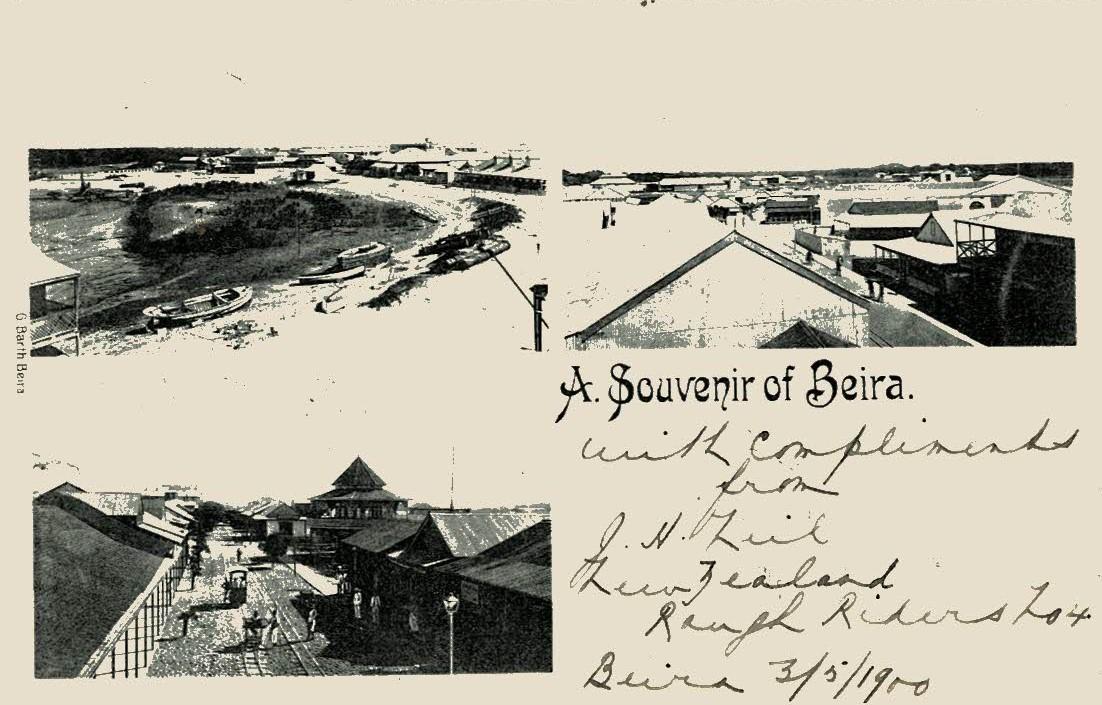 G. Barth Beira
A. Souvenir of Beira.
with compliments
from
J. H. Neil
New Zealand
Rough Riders No 4.
Beira 3/5/1900